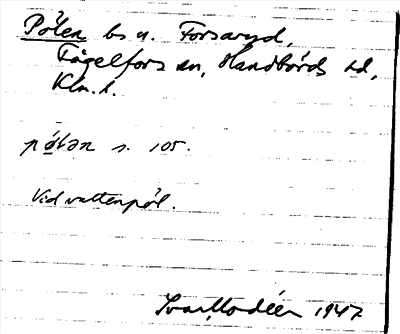 Pölen bs u. Forsaryd,
Fågelfors sn, Handbörds hd,
Klm. l.
pǿlən s. 105.
Vid vattenpöl.
Ivar Modéer 1947